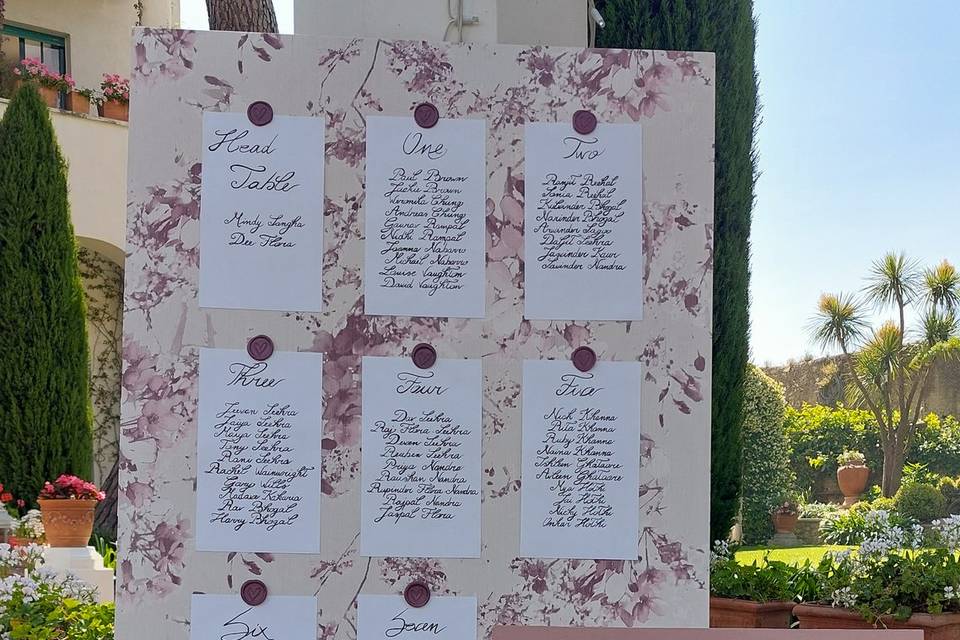 Head
Table
Mindy Sangha
Dee Flora
One
Paul Brown
Jackie Brown
Veronika Chung
Andreas Chung
Gaurav Rampal
Nidhi Rampal
Joanna Nabarro
Michael Nabarro
Louise Vaughton
David Vaughton
Two
Ranjit Rehal
Sonia Rehal
Kulvinder Bhogal
Narinder Bhogal
Arvinder
Daljit Seehra
Jasvinder Kaur
Nandra
Three
Jeevan Seehra
Jaya Seehra
Maiya Seehra
Tony Seehra
Rani Seehra
Rachel Wainwright
Gary Wills
Kadave Kaharia
Rav Bhogal
Harry Bhogal
Four
Dav Seehra
Raj Flora Seehra
Deven Seehra
Reuben Seehra
Priya Nandra
Raushan Nandra
Rupinder Flora Nandra
Rajpal Nandra
Jaspal Flora
Five
Nick Khanna
Rita Khanna
Ruby Khanna
Naina Khanna
Ishleen Ghataore
Avleen Ghataore
Hothi
Nicky Hothi
Onkar Hothi
Six
Seven